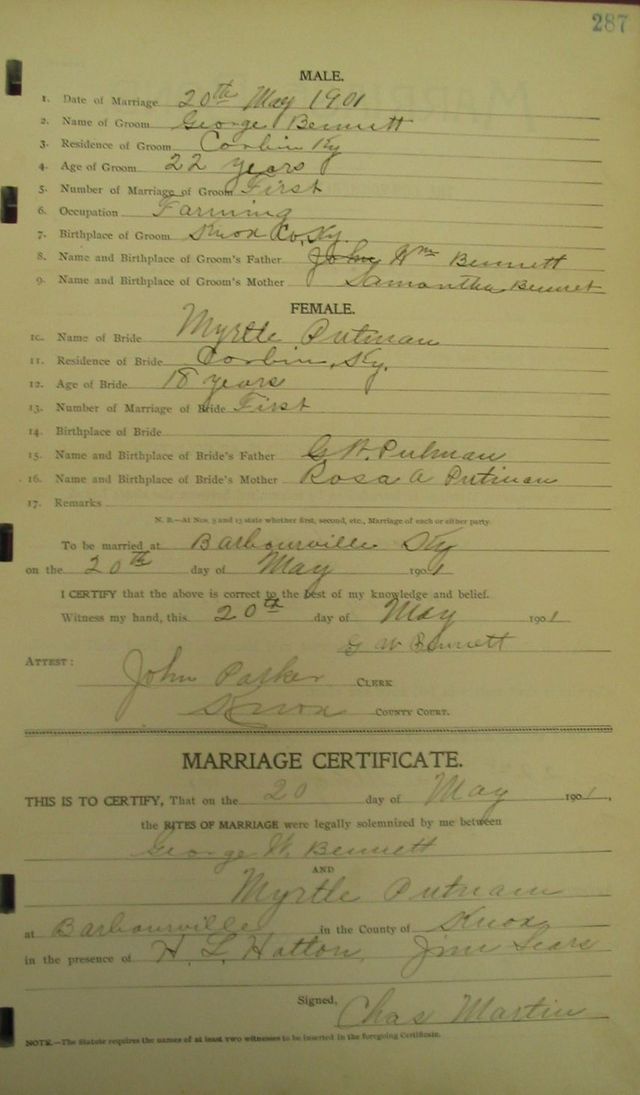 287
MALE.
1. Date of Marriage 20th May 1901
2. Name of Groom George Bennett
3. Residence of Groom Corbin Ky
4. Age of Groom 22 years
5. Number of Marriage of Groom First
6. Occupation Farming
7. Birthplace of Groom Knox Co, Ky.
8. Name and Birthplace of Groom's Father John Wm Bennett
9. Name and Birthplace of Groom's Mother Samantha Bennet
FEMALE.
10. Name of Bride Myrtle Putman
11. Residence of Bride Corbin, Ky.
12. Age of Bride 18 years
13. Number of Marriage of Bride First
14. Birthplace of Bride
15. Name and Birthplace of Bride's Father G Putman
16. Name and Birthplace of Bride's Mother Rosa A Putman
17. Remarks
N. B.—At Nos. 5 and 13 state whether first, second, etc., Marriage of each or either party.
To be married at Barbourville Ky
on the 20th day of May 1901
I CERTIFY that the above is correct to the best of my knowledge and belief.
Witness my hand, this 20th day of May 1901
G W Bennett
ATTEST:
John Parker CLERK
Knox COUNTY COURT.
MARRIAGE CERTIFICATE.
THIS IS TO CERTIFY, That on the 20 day of May 1901,
the RITES OF MARRIAGE were legally solemnized by me between
George W. Bennett
AND
Myrtle Putnam
at Barbourville in the County of Knox
in the presence of H. L. Hatton, Jim Sears
Signed, Chas Martin
NOTE.—The Statute requires the names of at least two witnesses to be inserted in the foregoing Certificate.